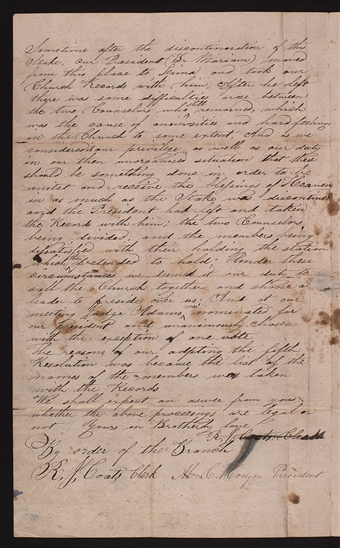 Sometime after the discontinuation of this
Stake our President (E. Marcum) moved
from this place to Lima, and took our
Church Records with him; After he left
there was some difficulties arose between
the two Counselors who still remained, which
was the cause of animosities and hard feelings
in the Church to some extent, And as we
considered our privilege as well as our duty
in our then unorganised situation that there
should be something done in order to be
united and receive the blessings of Heaven
in as much as the Stake was discontinued
and the President had left and taken
the Record with him; the two Counselors
being divided, and the members being
dissatisfied with their holding the station
which they pretended to hold; Under these
circumstances we deemed it our duty to
call the Church together and choose a
leader to preside over us; And at our
meeting Judge Adams was nominated for
our President and unanimously chosen
with the exception of one vote
The reasons of our adopting the fifth
Resolution was because the list of the
names of the members was taken
with the Records
We shall expect an answer from you
whether the above proceedings are legal or
not Yours in Brotherly love
R. J. Coats Clerk
By order of the Branch
R. J. Coats Clerk President